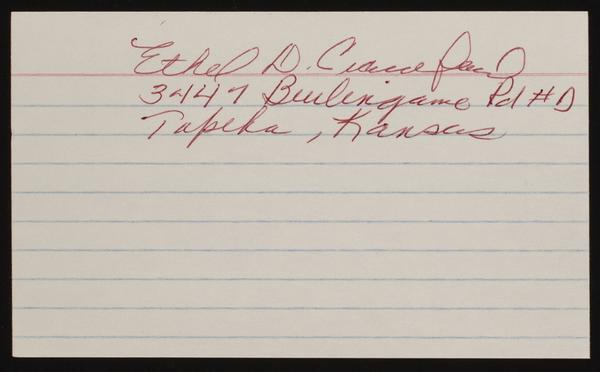 Ethel D. Crawford
3447 Burlingame Rd #D
Topeka, Kansas